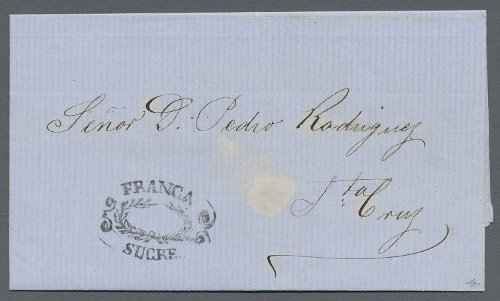 Señor D. Pedro Rodriguez
Sta Cruz
FRANCA
SUCRE